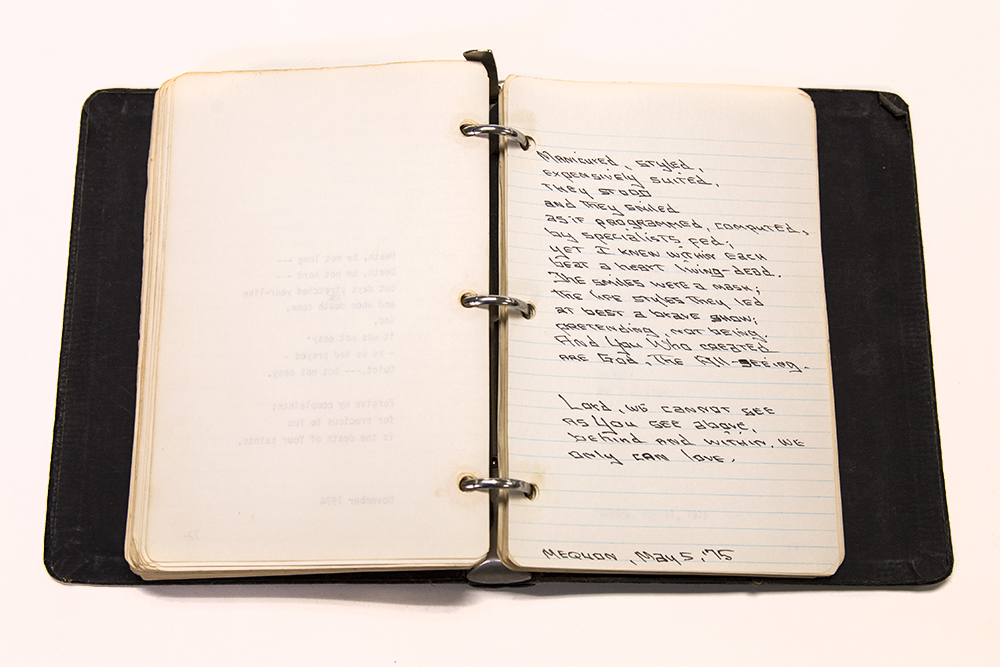 Death, be not long ---
Death, be not hard ---
but days stretched year-like
and when death came,
it was not easy
- as we had prayed -
Quiet, --- but not easy.
Forgive my complaint;
for precious to You
is the death of Your saints.
November 1974
Manicured, styled,
expensively suited,
they stood
and they smiled
as if programmed, computed,
by specialists fed;
yet I knew within each
beat a heart living-dead.
The smiles were a mask;
the life styles they led
at best a brave show;
pretending, not being.
And You Who created
are God, The All-seeing.
Lord, we cannot see
as You see above,
behind and within. We
only can love.
Mequon, May 5, '75